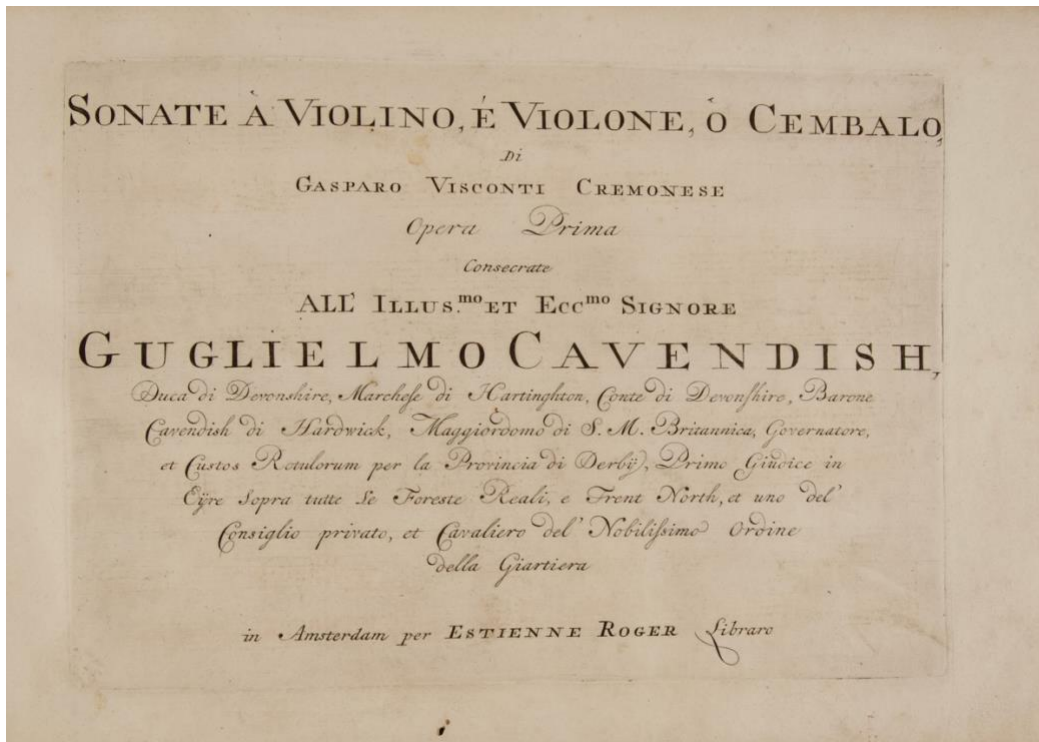 SONATE À VIOLINO, É VIOLONE, Ò CEMBALO,
Di
GASPARO VISCONTI CREMONESE
Opera Prima
Consecrate
ALL' ILLUS.mo ET ECCmo SIGNORE
GUGLIELMO CAVENDISH,
Duca di Devonshire, Marchese di Hartinghton, Conte di Devonshire, Barone
Cavendish di Hardwick, Maggiordomo di S. M. Britannica, Governatore,
et Custos Rotulorum per la Provincia di Derbÿ, Primo Giudice in
Eÿre sopra tutte le Foreste Reali, e Trent North, et uno del'
Consiglio privato, et Cavaliero del' Nobilissimo Ordine
della Giartiera
in Amsterdam per ESTIENNE ROGER Libraro